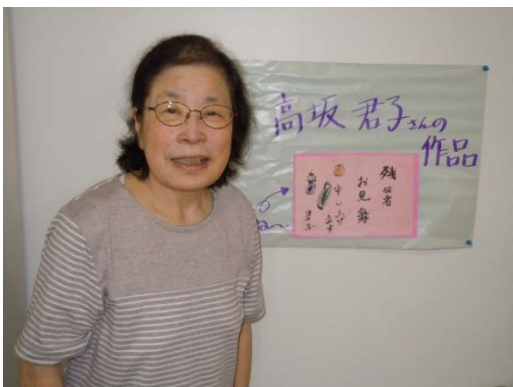 高坂 君子さんの
作品
残暑
お見舞
申し上げ
ます
君子